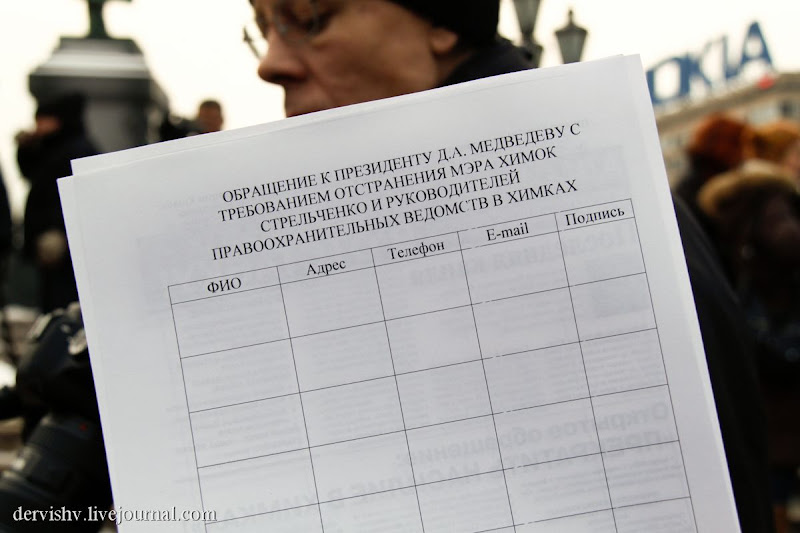 NOKIA
ОБРАЩЕНИЕ К ПРЕЗИДЕНТУ Д.А. МЕДВЕДЕВУ С
ТРЕБОВАНИЕМ ОТСТРАНЕНИЯ МЭРА ХИМОК
СТРЕЛЬЧЕНКО И РУКОВОДИТЕЛЕЙ
ПРАВООХРАНИТЕЛЬНЫХ ВЕДОМСТВ В ХИМКАХ
ФИО Адрес Телефон E-mail Подпись
Открытое обращение:
dervishv.livejournal.com